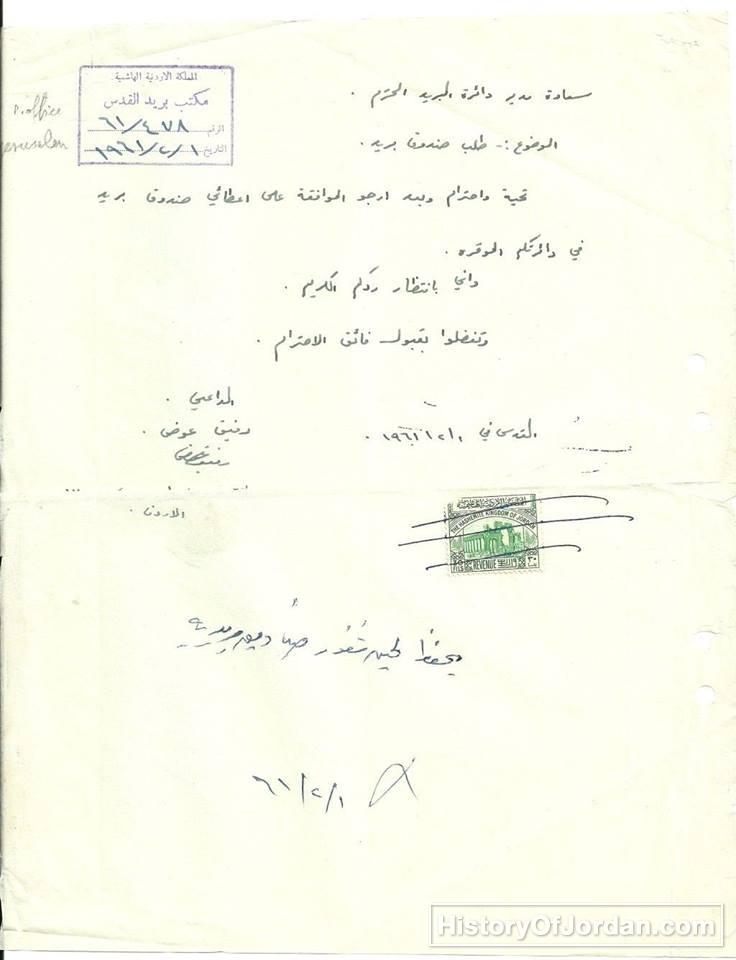 المملكة الاردنية الهاشمية
مكتب بريد القدس
الرقم ٦١/٤٧٨
التاريخ ١٩٦١/٢/١
P. office
Jerusalem
سعادة مدير دائرة البريد المحترم .
الموضوع :- طلب صندوق بريد .
تحية واحترام وبعد ارجو الموافقة على اعطائي صندوق بريد
في دائرتكم الموقره .
واني بانتظار ردكم الكريم .
وتفضلوا بقبول فائق الاحترام .
المداعي .
القدس في ١٩٦١/٢/١ .
رفيق عوض .
الاردن .
THE HASHEMITE KINGDOM OF JORDAN
FILS REVENUE
يحفظ لحين شغور صناديق بريدية
٦١/٢/١
HistoryOfJordan.com